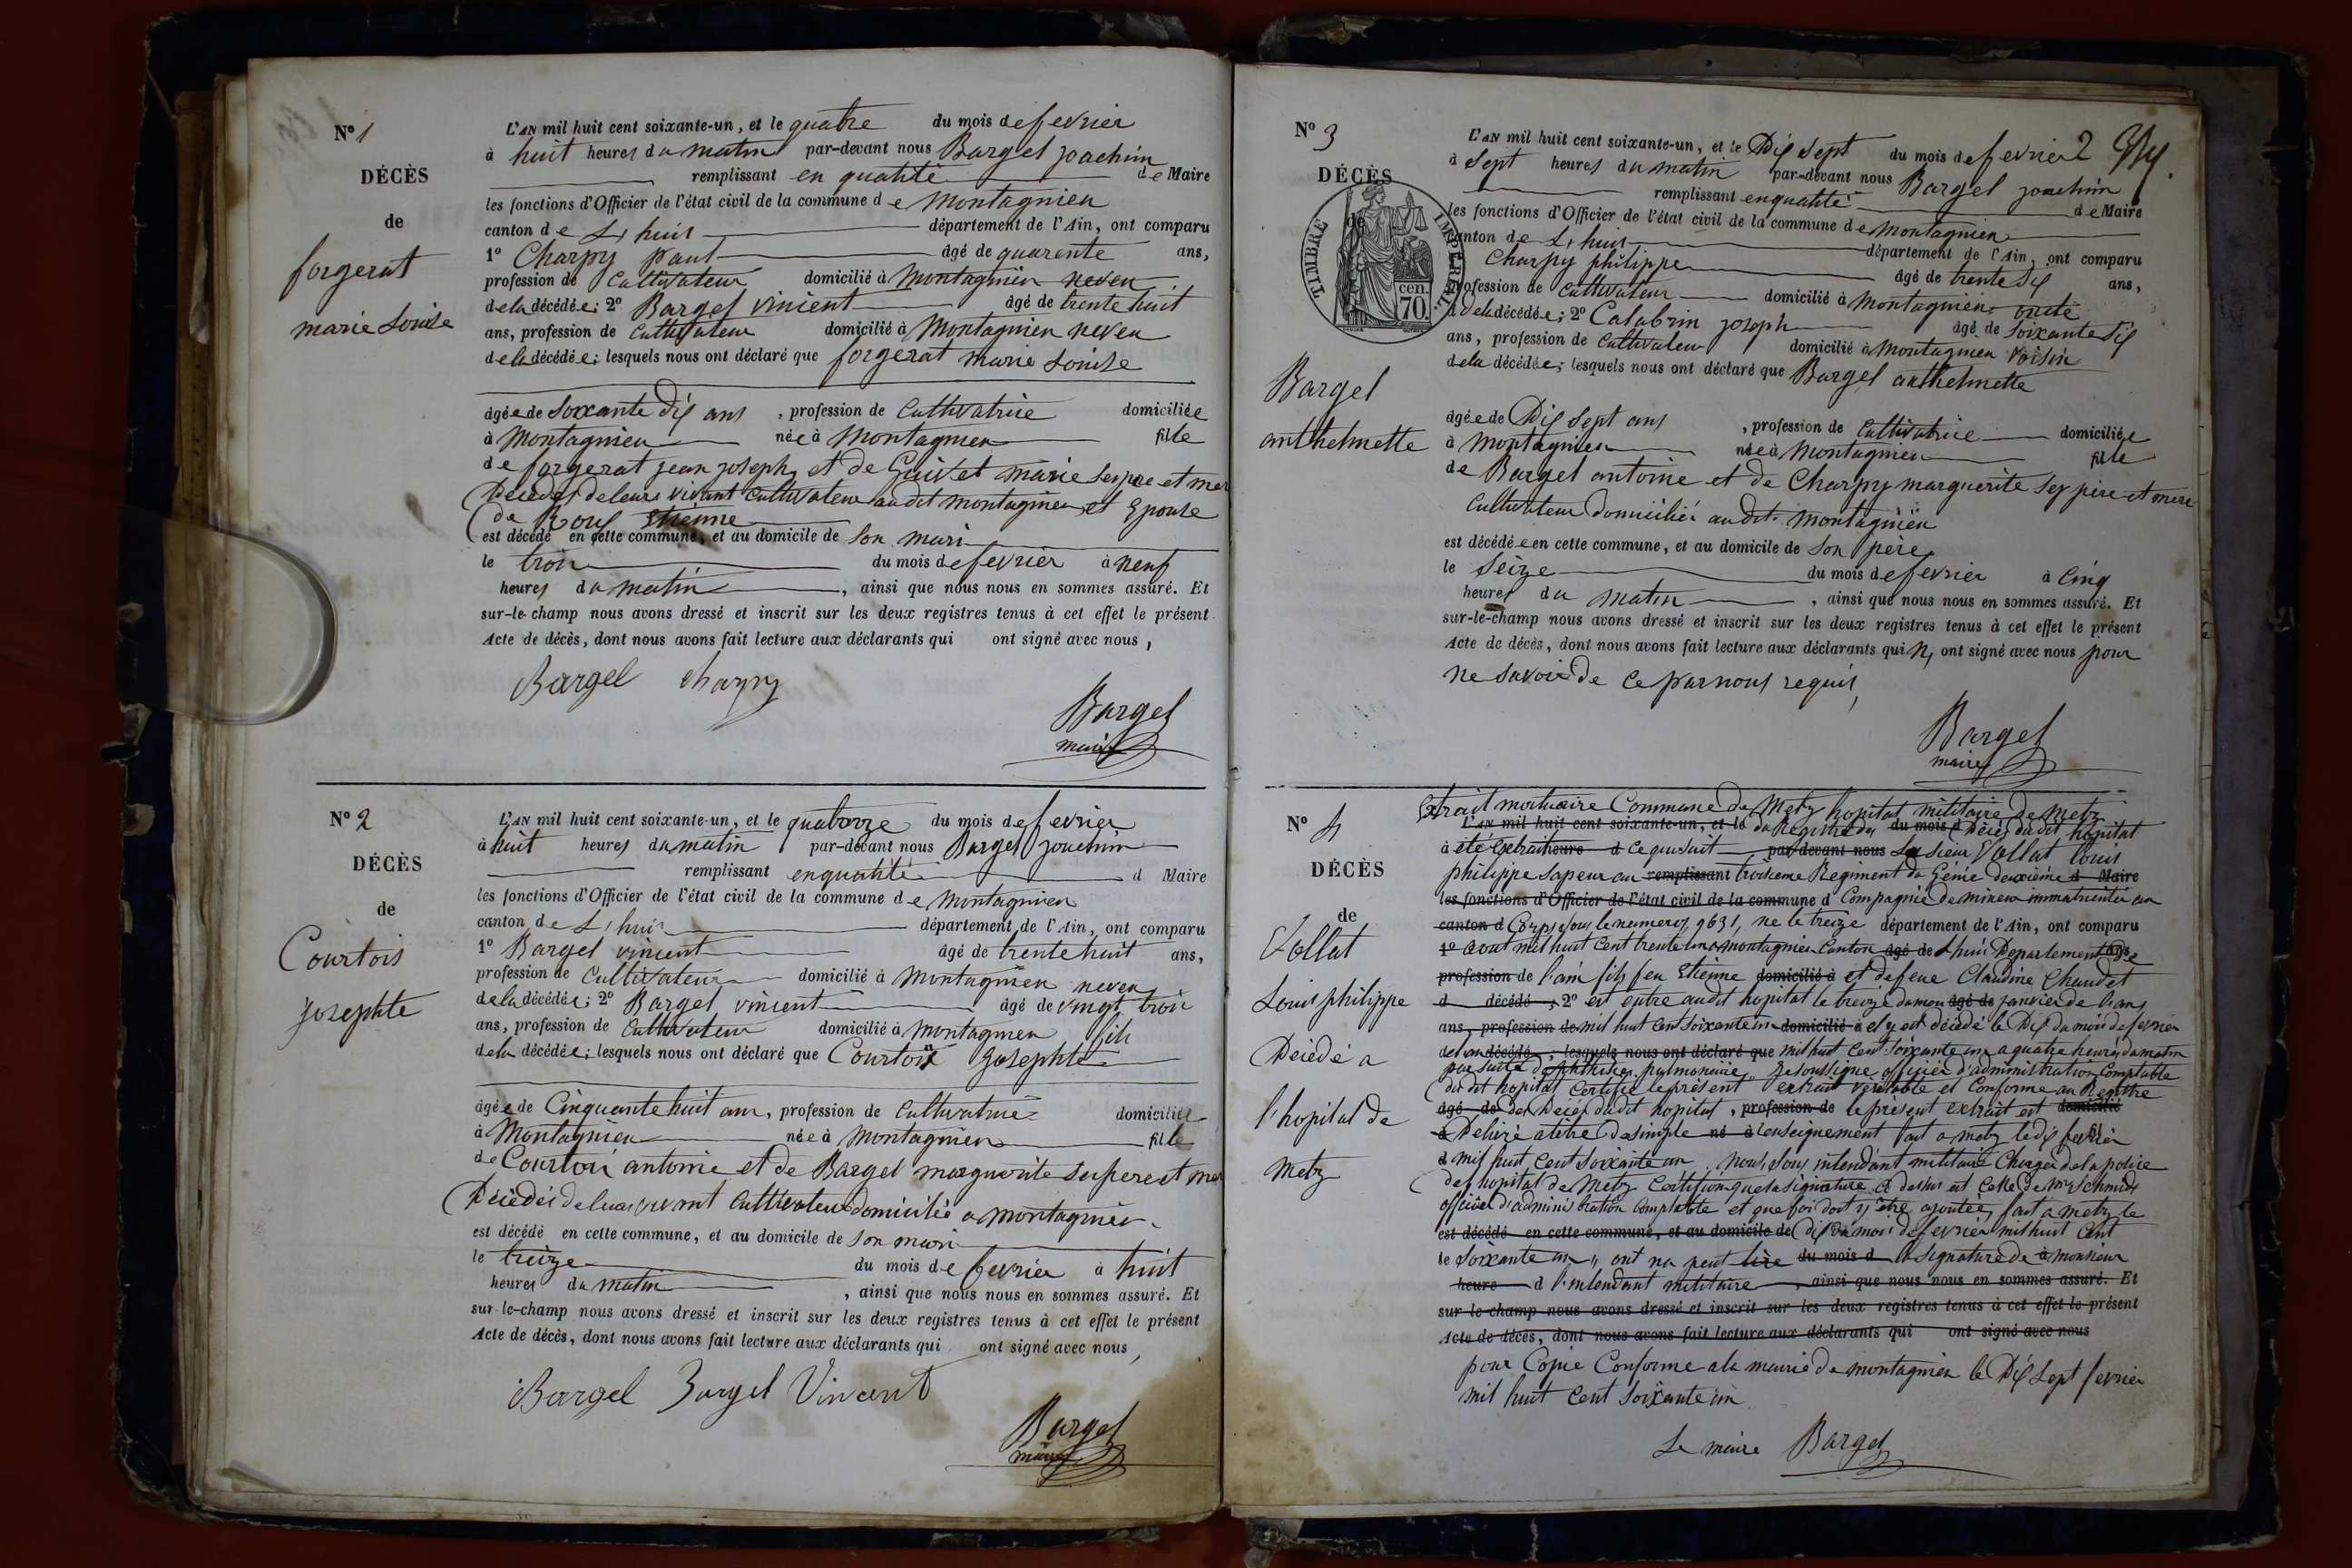 N° 1
DÉCÈS
de
forgerat
marie Louise
L'AN mil huit cent soixante-un, et le quatre du mois de fevrier
à huit heures du matin par-devant nous Bargel joachim
remplissant en qualité de Maire
les fonctions d'Officier de l'état civil de la commune de Montagnieu
canton de L'huis département de l'Ain, ont comparu
1° Charpy paul âgé de quarente ans,
profession de Cultivateur domicilié à Montagnieu neveu
de la décédée; 2° Bargel vincent âgé de trente huit
ans, profession de Cultivateur domicilié à Montagnieu neveu
de la décédée; lesquels nous ont déclaré que forgerat marie Louise
âgée de Soixante dix ans, profession de Cultivatrice domiciliée
à Montagnieu née à Montagnieu fille
de forgerat jean joseph et de Guivet marie ses pere et mer
Décédés de leurs vivant Cultivateur audit montagnieu et Epouse
de Roux Etienne
est décédé en cette commune, et au domicile de son mari
le trois du mois de fevrier à neuf
heures du matin, ainsi que nous nous en sommes assuré. Et
sur-le-champ nous avons dressé et inscrit sur les deux registres tenus à cet effet le présent
Acte de décès, dont nous avons fait lecture aux déclarants qui ont signé avec nous,
Bargel Charpy
Bargel
maire
N° 2
DÉCÈS
de
Courtois
josephte
L'AN mil huit cent soixante-un, et le quatorze du mois de fevrier
à huit heures du matin par-devant nous Bargel joachim
remplissant en qualité d Maire
les fonctions d'Officier de l'état civil de la commune de Montagnieu
canton de L'huis département de l'Ain, ont comparu
1° Bargel vincent âgé de trente huit ans,
profession de Cultivateur domicilié à Montagnieu neveu
de la décédée; 2° Bargel vincent âgé de vingt trois
ans, profession de Cultivateur domicilié à Montagnieu fils
de la décédée; lesquels nous ont déclaré que Courtois Josephte
âgée de Cinquante huit ans, profession de Cultivatrice domiciliée
à Montagnieu née à Montagnieu fille
de Courtois antoine et de Bargel marguerite ses pere et mer
Décédés de leurs vivant Cultivateur domicilié a montagnieu
est décédé en cette commune, et au domicile de son mari
le treize du mois de fevrier à huit
heures du matin, ainsi que nous nous en sommes assuré. Et
sur-le-champ nous avons dressé et inscrit sur les deux registres tenus à cet effet le présent
Acte de décès, dont nous avons fait lecture aux déclarants qui ont signé avec nous,
Bargel Bargel Vincent
Bargel
maire
N° 3
DÉCÈS
de
TIMBRE IMPÉRIAL
cen. 70.
Bargel
anthelmette
2
L'AN mil huit cent soixante-un, et le Dix sept du mois de fevrier
à Sept heures du matin par-devant nous Bargel joachim
remplissant en qualité de Maire
les fonctions d'Officier de l'état civil de la commune de montagnieu
canton de L'huis département de l'Ain, ont comparu
Charpy philippe âgé de trente six ans,
profession de Cultivateur domicilié à Montagnieu oncle
de la décédée; 2° Calabrin joseph âgé de Soixante six
ans, profession de Cultivateur domicilié à Montagnieu voisin
de la décédée; lesquels nous ont déclaré que Bargel anthelmette
âgée de Dix sept ans, profession de Cultivatrice domiciliée
à Montagnieu née à Montagnieu fille
de Bargel antoine et de Charpy marguerite ses père et mere
Cultivateur domicilié audit Montagnieu
est décédée en cette commune, et au domicile de son père
le Seize du mois de fevrier à Cinq
heures du matin, ainsi que nous nous en sommes assuré. Et
sur-le-champ nous avons dressé et inscrit sur les deux registres tenus à cet effet le présent
Acte de décès, dont nous avons fait lecture aux déclarants qui n, ont signé avec nous pour
ne savoir de ce par nous requis,
Bargel
maire
N° 4
DÉCÈS
de
Vollat
Louis philippe
Décédé a
l'hopital de
Metz
Extrait mortuaire Commune de Metz hopital militaire de Metz
L'AN mil huit cent soixante-un, et le du Registre des du mois d Décès dudit hopital
à été Extrait heure d ce qui suit par-devant nous Le sieur Vollat Louis
philippe Sapeur au remplissant troisieme Regiment du Génie deuxième d Maire
les fonctions d'Officier de l'état civil de la commune d Compagnie de mineur immatriculé au
canton d Corps sous le numero 9631, ne le treize département de l'Ain, ont comparu
1° aout mil huit cent trente un a montagnieu Canton âgé de Lhuis Departement ans de
profession de l'ain fils feu Etienne domicilié à et de feue Claudine Chaudet
d décédé; 2° est entre audit hopital le treize du mois âgé de janvier de l'ans
ans, profession de mil huit cent soixante un domicilié à et y est décédé le Dix du mois de fevrier
de l'an décédé; lesquels nous ont déclaré que mil huit cent soixante un a quatre heures du matin
par suite de phthisie pulmonaire je soussigné officier d'administration Comptable
du dit hopital certifie le présent extrait véritable et Conforme au Registre
âgé de des Décès dudit hopital, profession de le présent extrait est domicilié
à Delivré a titre de simple né à renseignement fait a metz le dix fevrier fil
d mil huit cent soixante un nous sous intendant militaire Chargé de la police
des hopital de Metz Certifions que la signature ci dessus est celle de mr Schmidt
officier d'administration comptable et que foi doit y être ajoutée, fait a metz le
est décédé en cette commune, et au domicile de Dix du mois de fevrier mil huit cent
le soixante un, ont na peut lire du mois d la signature de à monsieur
heure d l'intendant militaire, ainsi que nous nous en sommes assuré. Et
sur-le-champ nous avons dressé et inscrit sur les deux registres tenus à cet effet le présent
Acte de décès, dont nous avons fait lecture aux déclarants qui ont signé avec nous
pour Copie Conforme a la mairie de montagnieu le Dix sept fevrier
mil huit cent soixante un
Le maire Bargel